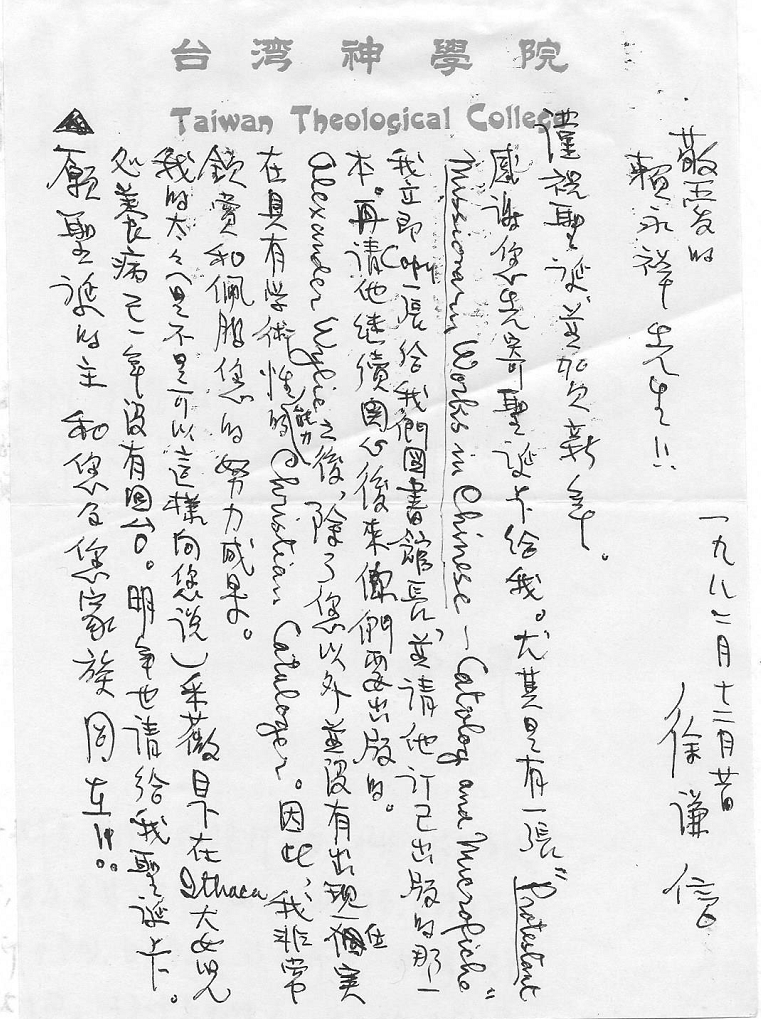 台湾神學院
Taiwan Theological College
敬愛的
賴永祥先生!!
謹祝聖诞並賀新年。
感谢您先寄聖诞卡给我。尤其是有一張"Protestant
Missionary Works in Chinese – Catalog and Microfiche"
我立即Copy一張给我們圖書館長,並请他订已出版的那一
本。再请他继續関心後來你們要出版的。
Alexander Wylie之後,除了您以外並没有出現一個实
在具有学術性的能力 Christian Cataloger。因此,我非常
欽賞和佩服您的努力成果。
我的太太(是不是可以這樣向您说)采薇目下在Ithaca大女児
处養病已一年没有回台。明年也请给我聖诞卡。
願聖诞的主和您及您家族同在!!。
徐谦信